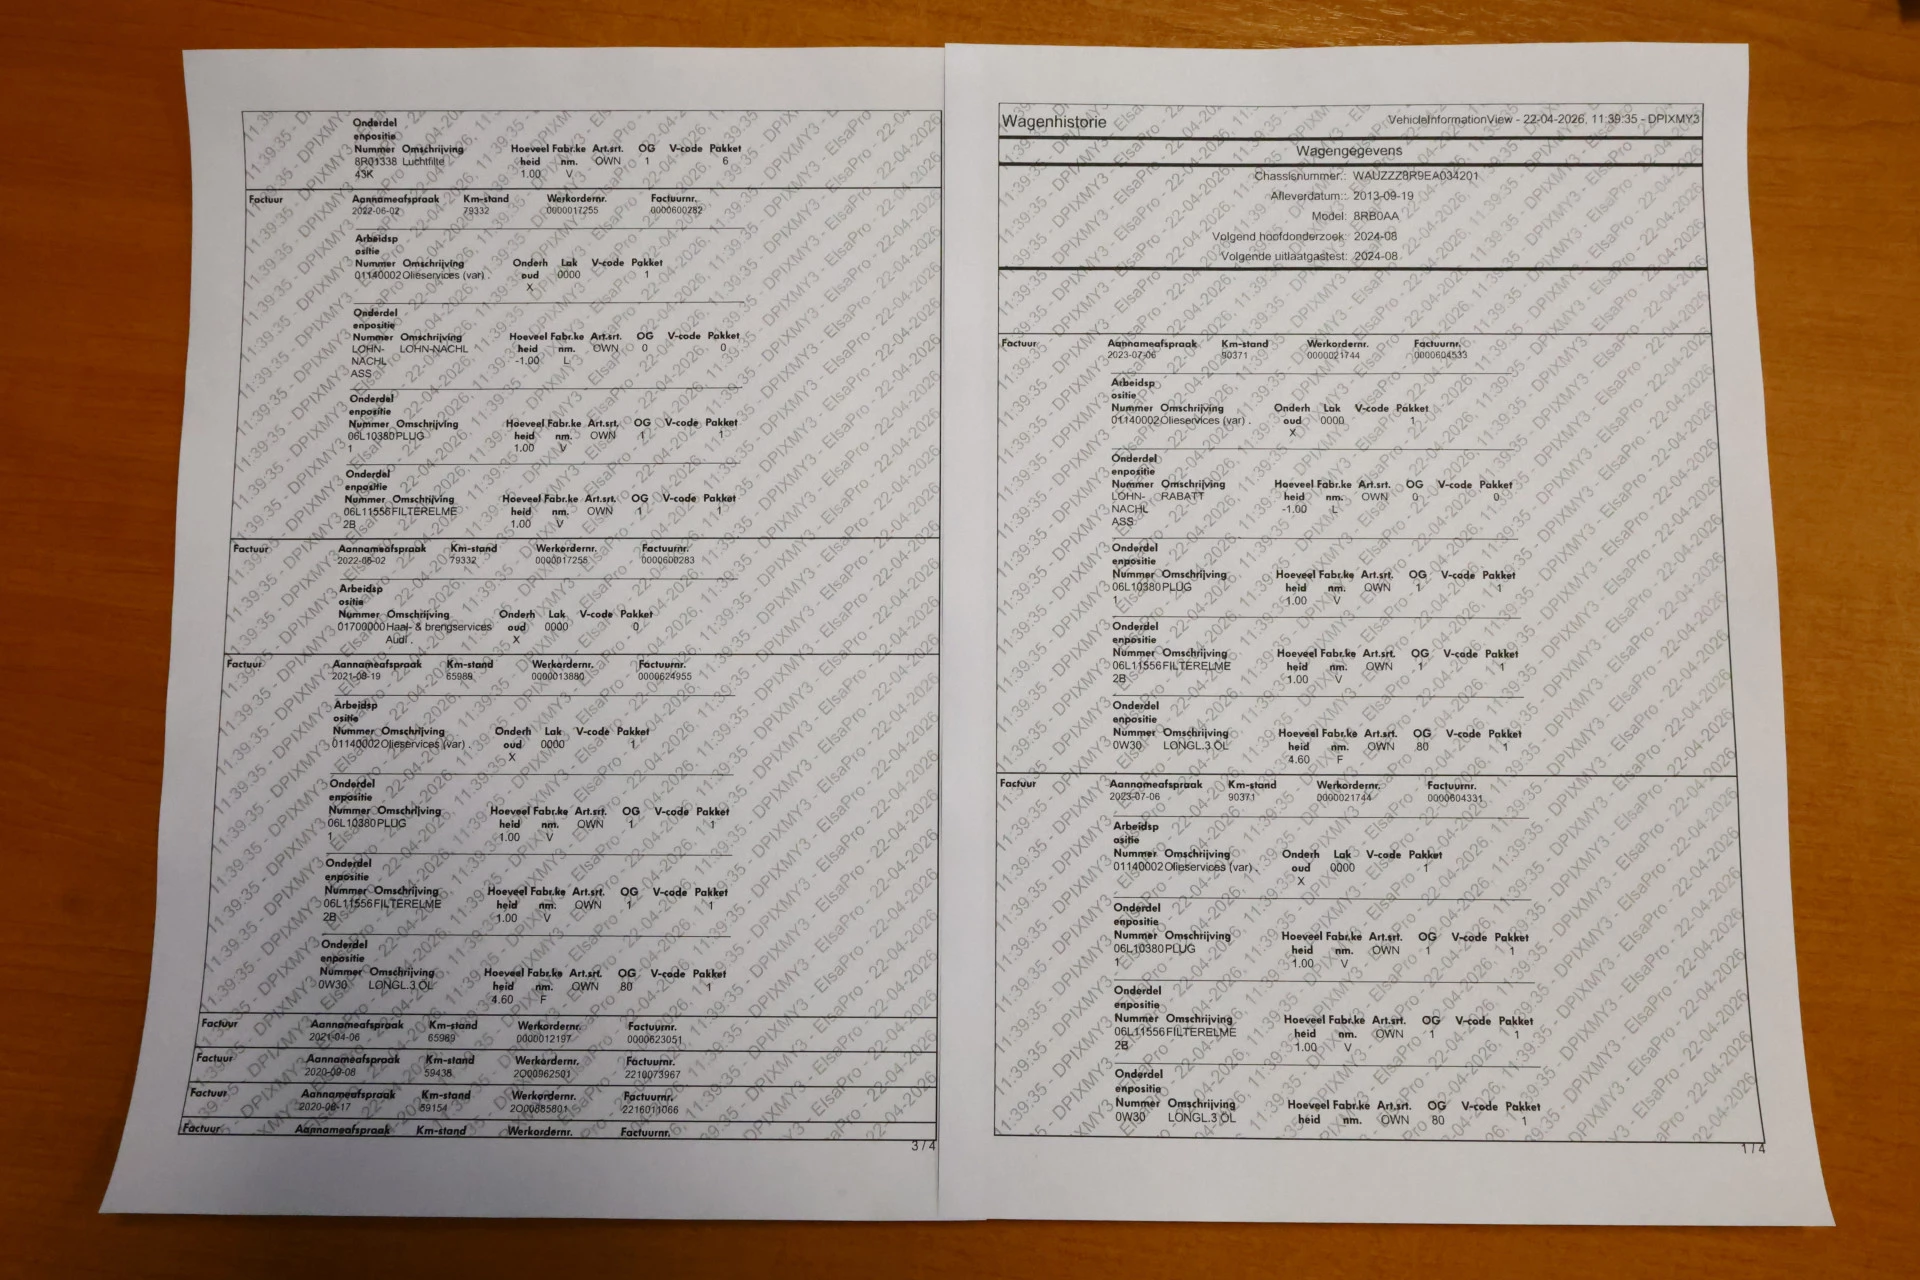 Onderdel
enpositie
Nummer Omschrijving Hoeveel Fabr.ke Art.srt. OG V-code Pakket
8R01338 Luchtfilte heid nm. OWN 1 6
43K 1.00 V
Factuur Aannameafspraak Km-stand Werkordernr. Factuurnr.
2022-06-02 79332 0000017255 0000600282
Arbeidsp
ositie
Nummer Omschrijving Onderh Lak V-code Pakket
01140002 Olieservices (var) . oud 0000 1
X
Onderdel
enpositie
Nummer Omschrijving Hoeveel Fabr.ke Art.srt. OG V-code Pakket
LOHN- LOHN-NACHL heid nm. OWN 0 0
NACHL -1.00 L
ASS
Onderdel
enpositie
Nummer Omschrijving Hoeveel Fabr.ke Art.srt. OG V-code Pakket
06L10380 PLUG heid nm. OWN 1 1
1 1.00 V
Onderdel
enpositie
Nummer Omschrijving Hoeveel Fabr.ke Art.srt. OG V-code Pakket
06L11556 FILTERELME heid nm. OWN 1 1
2B 1.00 V
Factuur Aannameafspraak Km-stand Werkordernr. Factuurnr.
2022-06-02 79332 0000017255 0000600283
Arbeidsp
ositie
Nummer Omschrijving Onderh Lak V-code Pakket
01700000 Haal- & brengservices oud 0000 0
Audi . X
Factuur Aannameafspraak Km-stand Werkordernr. Factuurnr.
2021-08-19 65989 0000013880 0000624955
Arbeidsp
ositie
Nummer Omschrijving Onderh Lak V-code Pakket
01140002 Olieservices (var) . oud 0000 1
X
Onderdel
enpositie
Nummer Omschrijving Hoeveel Fabr.ke Art.srt. OG V-code Pakket
06L10380 PLUG heid nm. OWN 1 1
1 1.00 V
Onderdel
enpositie
Nummer Omschrijving Hoeveel Fabr.ke Art.srt. OG V-code Pakket
06L11556 FILTERELME heid nm. OWN 1 1
2B 1.00 V
Onderdel
enpositie
Nummer Omschrijving Hoeveel Fabr.ke Art.srt. OG V-code Pakket
0W30 LONGL.3 ÖL heid nm. OWN 80 1
4.60 F
Factuur Aannameafspraak Km-stand Werkordernr. Factuurnr.
2021-04-06 65969 0000012197 0000623051
Factuur Aannameafspraak Km-stand Werkordernr. Factuurnr.
2020-09-08 59438 2O00962501 2210073967
Factuur Aannameafspraak Km-stand Werkordernr. Factuurnr.
2020-06-17 59154 2O00885801 2216011066
Factuur Aannameafspraak Km-stand Werkordernr. Factuurnr.
3 / 4
Wagenhistorie VehicleInformationView - 22-04-2026, 11:39:35 - DPIXMY3
Wagengegevens
Chassisnummer.: WAUZZZ8R9EA034201
Afleverdatum:: 2013-09-19
Model: 8RB0AA
Volgend hoofdonderzoek: 2024-08
Volgende uitlaatgastest: 2024-08
Factuur Aannameafspraak Km-stand Werkordernr. Factuurnr.
2023-07-06 90371 0000021744 0000604533
Arbeidsp
ositie
Nummer Omschrijving Onderh Lak V-code Pakket
01140002 Olieservices (var) . oud 0000 1
X
Onderdel
enpositie
Nummer Omschrijving Hoeveel Fabr.ke Art.srt. OG V-code Pakket
LOHN- RABATT heid nm. OWN 0 0
NACHL -1.00 L
ASS
Onderdel
enpositie
Nummer Omschrijving Hoeveel Fabr.ke Art.srt. OG V-code Pakket
06L10380 PLUG heid nm. OWN 1 1
1 1.00 V
Onderdel
enpositie
Nummer Omschrijving Hoeveel Fabr.ke Art.srt. OG V-code Pakket
06L11556 FILTERELME heid nm. OWN 1 1
2B 1.00 V
Onderdel
enpositie
Nummer Omschrijving Hoeveel Fabr.ke Art.srt. OG V-code Pakket
0W30 LONGL.3 ÖL heid nm. OWN 80 1
4.60 F
Factuur Aannameafspraak Km-stand Werkordernr. Factuurnr.
2023-07-06 90371 0000021744 0000604331
Arbeidsp
ositie
Nummer Omschrijving Onderh Lak V-code Pakket
01140002 Olieservices (var) . oud 0000 1
X
Onderdel
enpositie
Nummer Omschrijving Hoeveel Fabr.ke Art.srt. OG V-code Pakket
06L10380 PLUG heid nm. OWN 1 1
1 1.00 V
Onderdel
enpositie
Nummer Omschrijving Hoeveel Fabr.ke Art.srt. OG V-code Pakket
06L11556 FILTERELME heid nm. OWN 1 1
2B 1.00 V
Onderdel
enpositie
Nummer Omschrijving Hoeveel Fabr.ke Art.srt. OG V-code Pakket
0W30 LONGL.3 ÖL heid nm. OWN 80 1
1 / 4